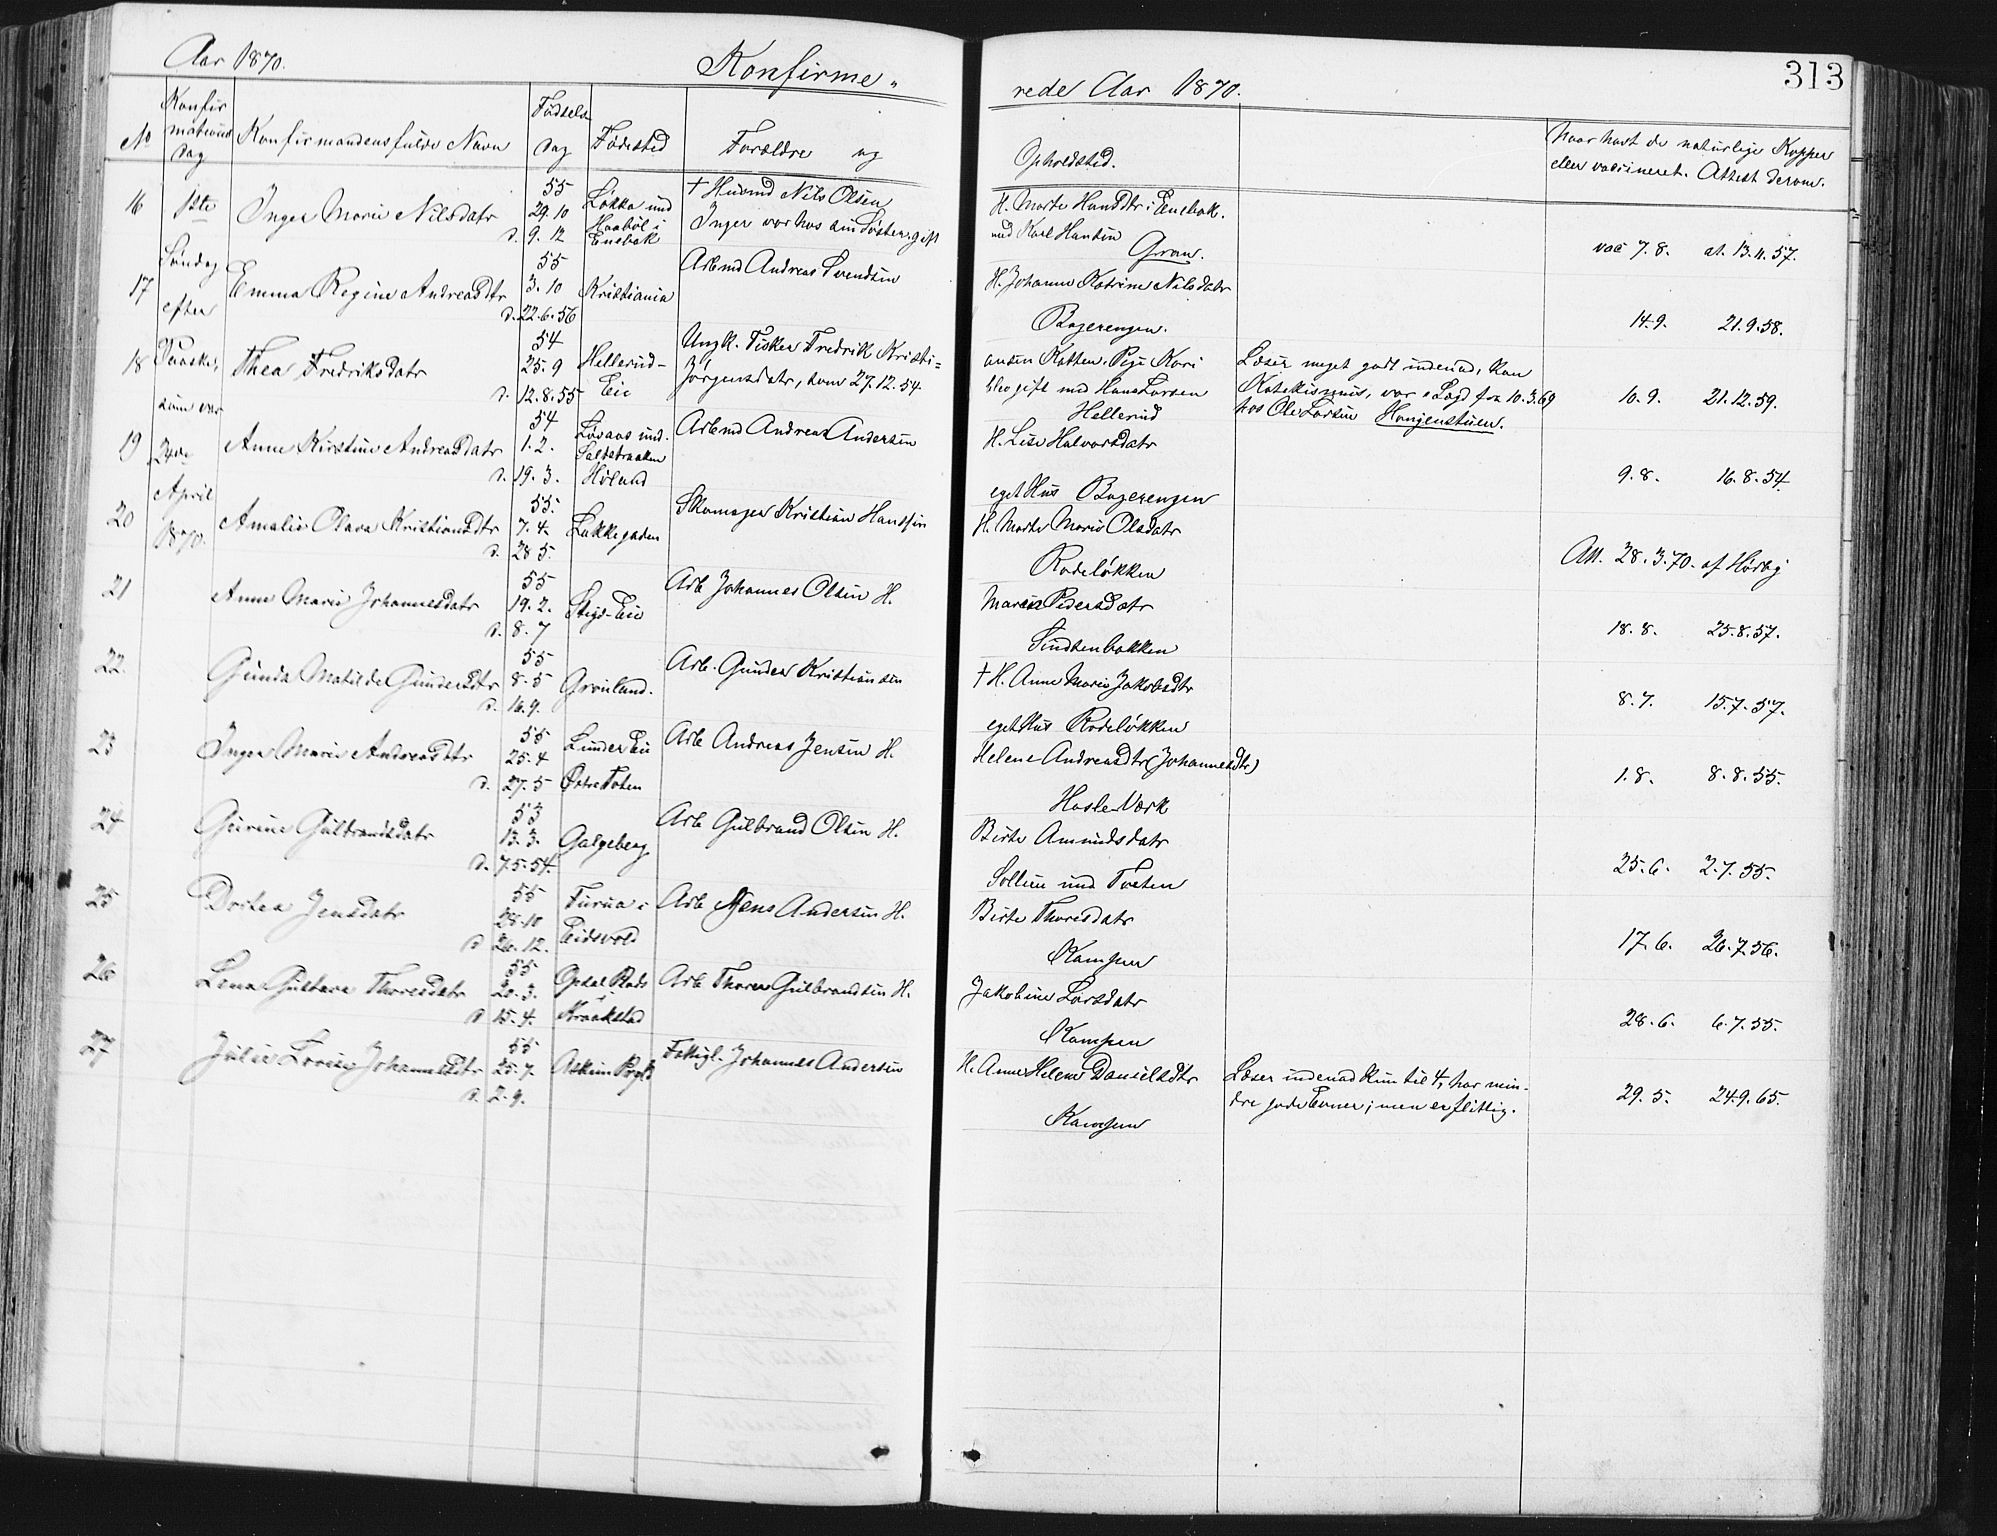 Aar 1870.
Konfirme-
rede Aar 1870.
313
No
Konfirmations dag
Konfirmandens fulde Navn
Fødsels dag
Fødested
Forældre og
Opholdsted.
Naar havt de naturlige Kopper
eller vaccineret. Attest derom.
1ste
Søndag
efter
Paaske,
som var
24de
April
1870.
16 Inger Marie Nilsdatr
55
29.10
d. 9.12
Løkka und
Haabøl i
Enebak
† Husmd Nils Olsen
H. Marte Hansdtr i Enebak.
Inger var hos sin Søster, gift
med Karl Hansen
Grav.
vac 7.8. at. 13.11.57.
17 Emma Regine Andreasdtr
55
3.10
d. 22.6.56
Kristiania
Arbmd Andreas Svendsen
H. Johanne Katrine Nilsdatr
Bagerengen.
14.9. 21.9.58.
18 Thea Fredriksdatr
54
25.9
d. 12.8.55
Hellerud-
Eie
Ungk. Fisker Fredrik Kristi-
ansen Katten. Pige Kari
Jørgensdatr, som 27.12.54.
blev gift med Hans Larsen
Hellerud
Læser meget godt indenad, kan
Katekismus, var i Lægd fra 10.3.69
hos Ole Larsen Haugenstuen.
10.9. 21.12.59.
19 Anne Kirstine Andreasdatr
54
1.2.
d. 19.3.
Høland
Arbmd Andreas Andersen
H. Lise Halvorsdatr
eget Hus Bagerengen
9.8. 16.8.54.
20 Amalie Olava Kristiansdtr
55.
7.4.
d. 28.5.
Lakkegaden
Skomager Kristian Hansen
H. Marte Marie Olsdatr
Rodeløkken
Att. 28.3.70. af Hørbÿ
21 Anne Marie Johannesdatr
55
19.2.
d. 8.7
Stigs-Eie
Arb Johannes Olsen H.
Maria Pedersdatr
Tindtenbakken
18.8. 25.8.57.
22. Gunda Matilde Gundersdtr
55
8.5
d. 16.9.
Grønland.
Arb. Gunder Kristiansen
† H. Anne Marie Jakobsdtr
eget Hus Rodeløkken
8.7. 15.7.57.
23 Inger Marie Andreasdtr
55
25.4
d. 27.5
Linder Eie
Østre Toten
Arb Andreas Jensen H.
Helene Andreasdtr (Johannesdtr)
Hasle-Værk
1.8. 8.8.55.
24 Gurine Gulbrandsdatr
53
13.3.
d. 7.5.54.
Galgeberg
Arb Gulbrand Olsen H.
Birte Amundsdatr
Sollien und Tveten
25.6. 2.7.55.
25 Dortea Jensdatr
55
28.10
d. 26.12.
Furua i
Eidsvold
Arb Jens Andersen H.
Birte Thoresdatr
Kampen
17.6. 26.7.56.
26 Lena Gustava Thoresdatr
55
20.3.
d. 15.4.
Opsal Plads
i
Kraakstad
Arb Thore Gulbrandsen H.
Jakobine Larsdatr
Kampen
28.6. 6.7.55.
27 Julie Lovise Johannesdtr
55
25.7.
d. 2.9.
Askim Prgld
Fattigl. Johannes Andersen
H. Anne Helene Danielsdtr
Kampen
Læser indenad kun til 4, har min-
dre gode Evner; men er flittig.
29.5. 24.9.65.